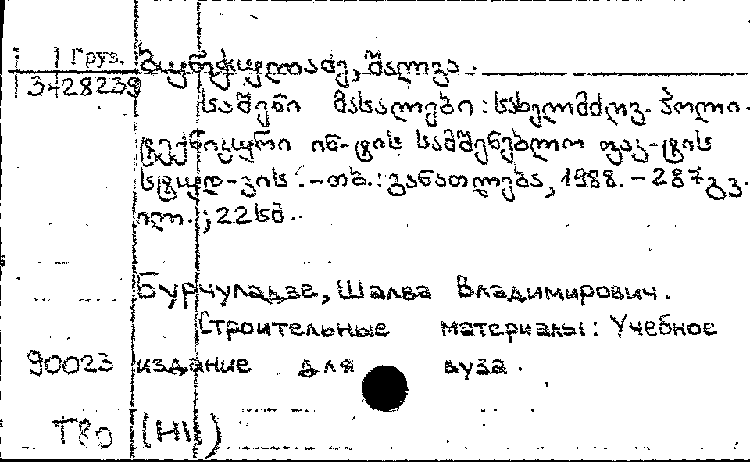 Груз. ბურჭულაძე, შალვა.
3-28239
საშენი მასალები: სახელმძღვ. პოლი-
ტექნიკური ინ-ტის სამშენებლო ფაკ-ტის
სტუდ-ვის. – თბ.: განათლება, 1988. – 287 გვ.
ილ.; 22 სმ.
Бурчуладзе, Шалва Владимирович.
Строительные материалы: Учебное
90023 издание для вуза.
Т80